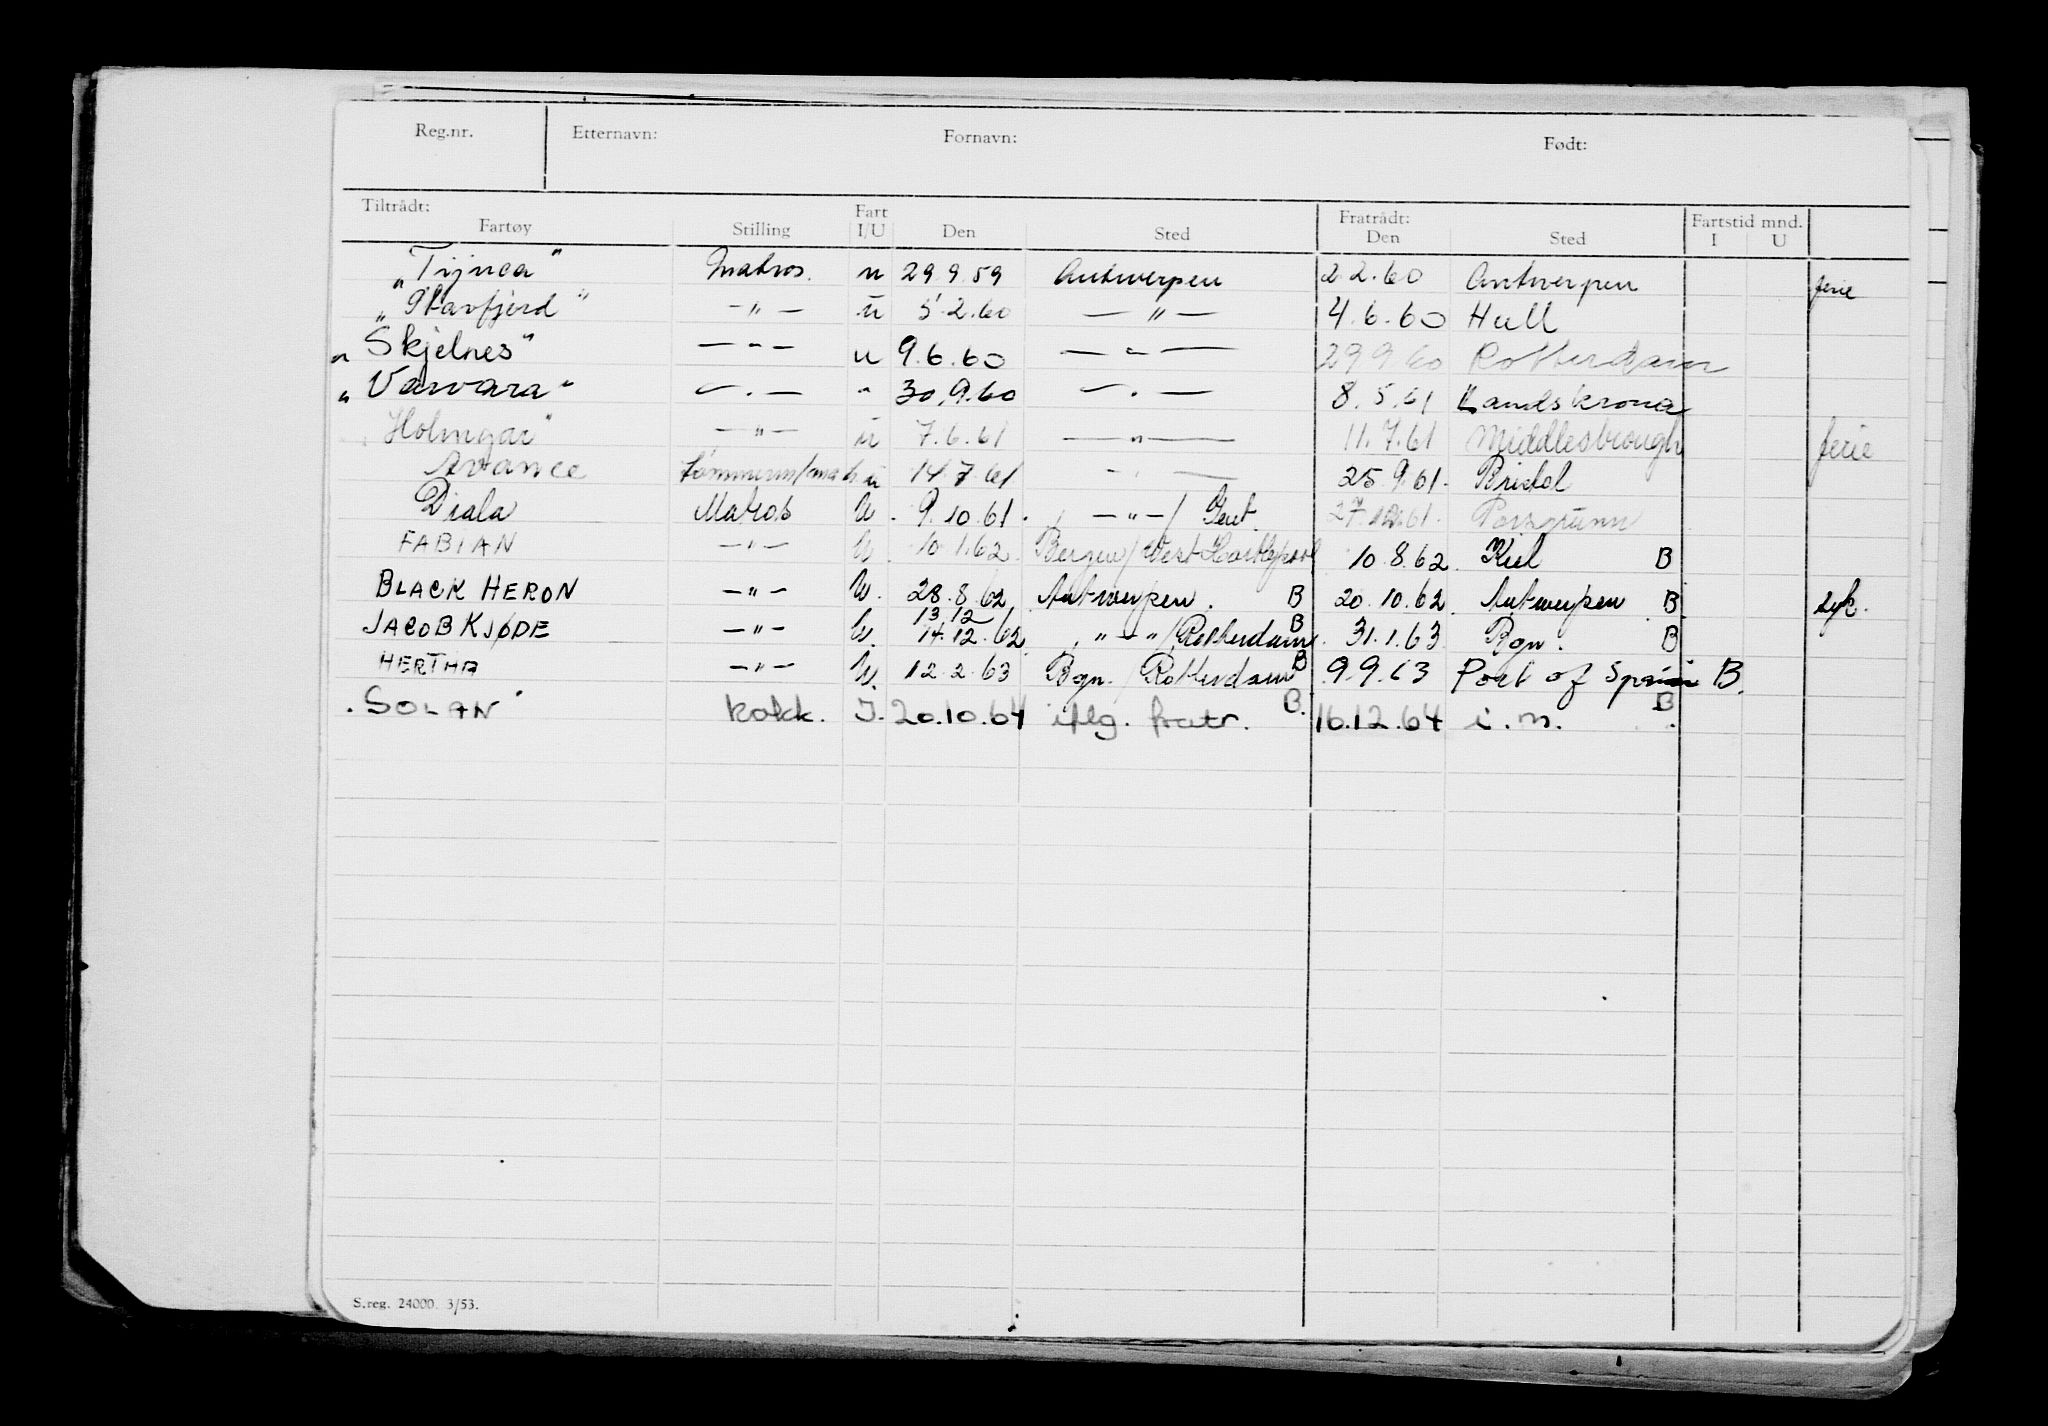 Reg.nr. Etternavn: Fornavn: Født:
Tiltrådt: Fart Fratrådt: Fartstid mnd.
Fartøy Stilling I/U Den Sted Den Sted I U
"Tijuca" Matros. u 29 9 59 Antwerpen 2 2.60 Antwerpen ferie
"Stavfjord" —"— u 5.2.60 —"— 4.6.60 Hull
"Skjelnes" —"— u 9.6.60 —"— 29 9 60 Rotterdam
"Varvara" —"— " 30.9.60 —"— 8.5.61 Landskrona
"Holmgar" —"— u 7.6.61 —"— 11.7.61 Middlesbrough ferie
Avance Tømmerm/mats u 14.7.61 —"— 25.9.61. Bristol
Diala Matros U. 9.10.61. —"—/ Gent. 27.12.61. Porsgrunn
FABIAN —"— U. 10.1.62. Bergen/West Hartlepool 10.8.62. Kiel B
BLACK HERON —"— U. 28.8.62. Antwerpen. B 20.10.62. Antwerpen B syk.
13 12
JACOB KJØDE —"— U. 14.12.62. —"—/Rotterdam B 31.1.63. Bgn. B
HERTHA —"— U. 12.2.63 Bgn./Rotterdam B 9.9.63 Port of Spain B.
SOLAN kokk. I. 20.10.64 iflg. fratr. B. 16.12.64 i.m. B
S.reg. 24000. 3/53.